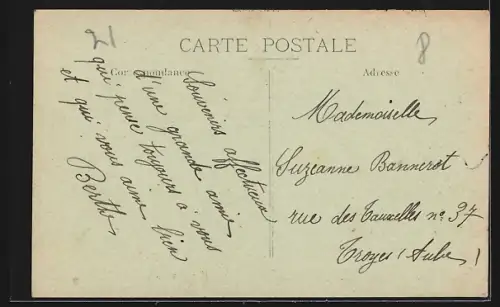 CARTE POSTALE
Correspondance
Adresse
Souvenirs affectueux
d'une grande amie
qui pense toujours à vous
et qui vous aime bien
Berthe
Mademoiselle
Suzeanne Bannerot
rue des Tauxelles nº 37
Troyes (Aube)
8